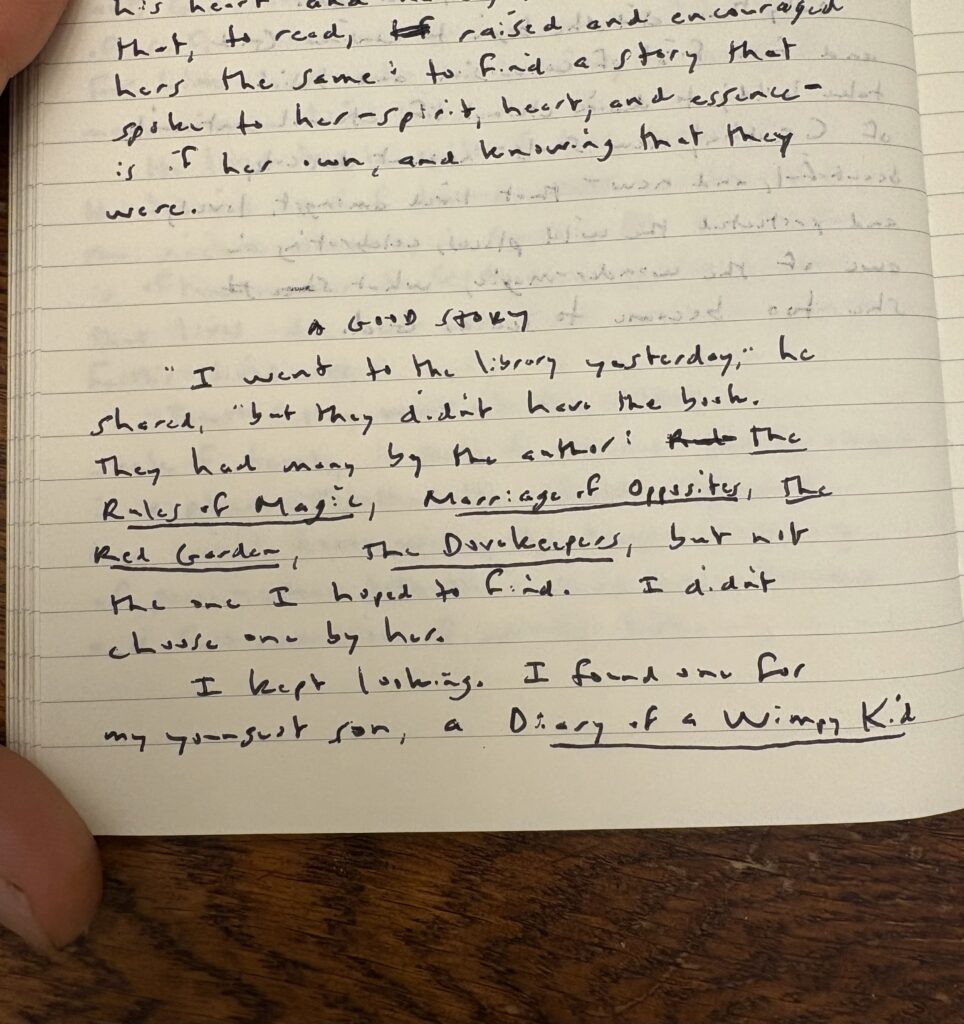 his heart and
that, to read, raised and encouraged
hers the same: to find a story that
spoke to her-spirit, heart, and essence-
is if her own, and knowing that they
were.
A GOOD STORY
"I went to the library yesterday," he
shared, "but they didn't have the book.
They had many by the author: The
Rules of Magic, Marriage of Opposites, The
Red Garden, The Dovekeepers, but not
the one I hoped to find. I didn't
choose one by her.
I kept looking. I found one for
my youngest son, a Diary of a Wimpy Kid